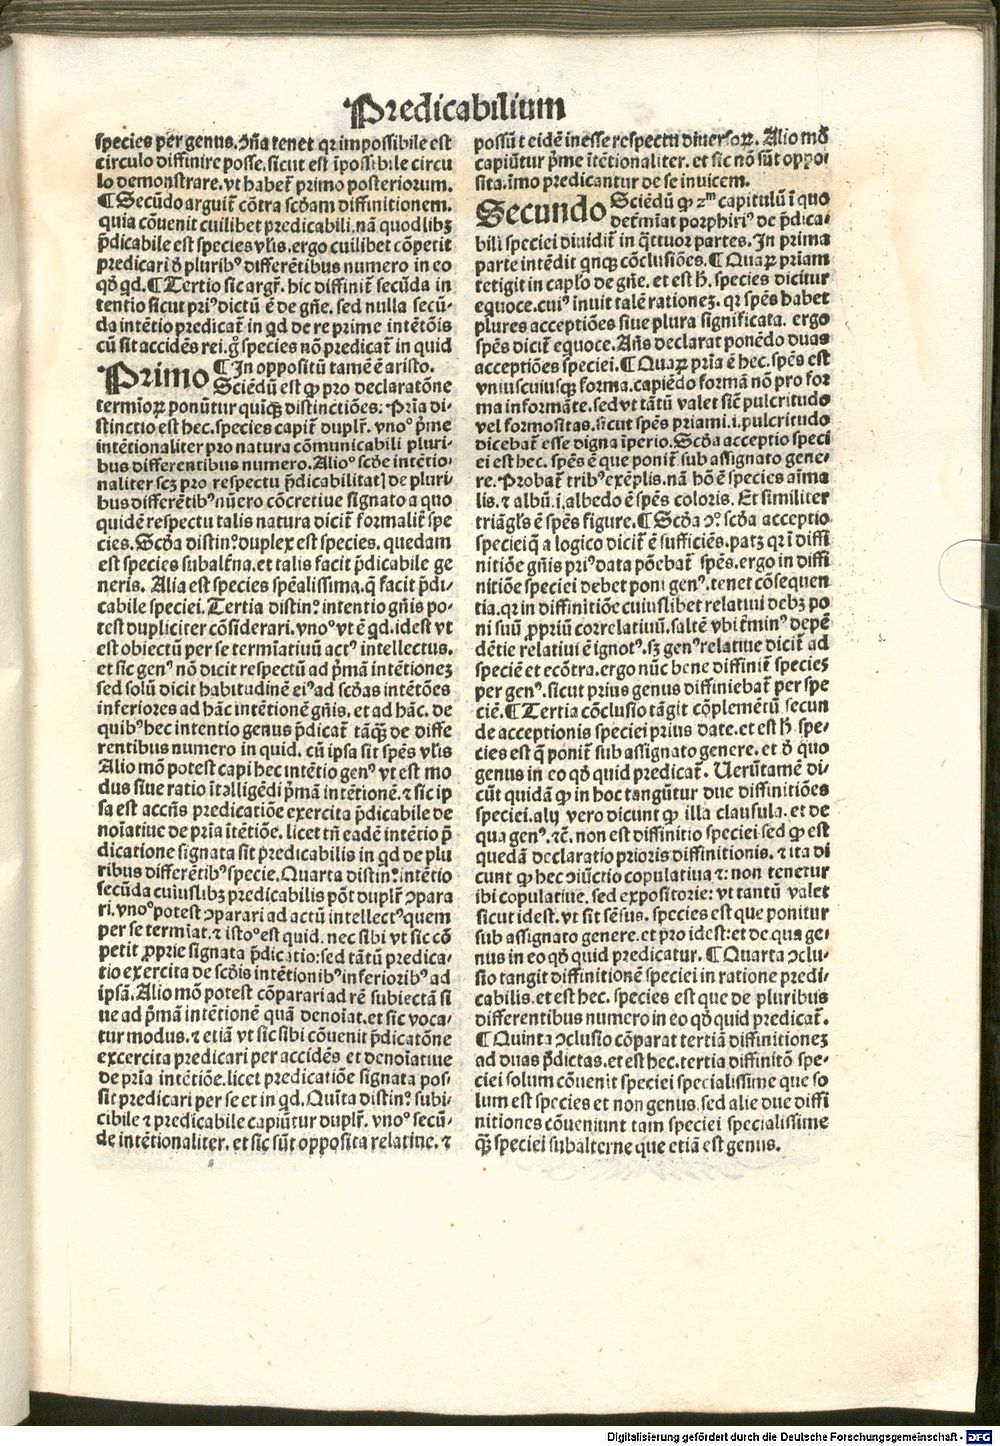 Predicabilium
species per genus. ↄña tenet qꝛ impossibile est
circulo diffinire posse. sicut est ĩpossibile circu
lo demonstrare. vt habet᷑ primo posteriorum.
¶ Secũdo arguit᷑ cõtra scḋam diffinitionem.
quia cõuenit cuilibet predicabili. nã quodlibꝫ
p̃dicabile est species vl̃is. ergo cuilibet cõpetit
predicari ḋ pluribꝰ differẽtibus numero in eo
qḋ qd. ¶ Tertio sic argr̃. hic diffinit᷑ secũda in
tentio sicut priꝰ dictũ ẽ de gñe. sed nulla secũ-
da intẽtio predicat᷑ in qd de re prime intẽtõis
cũ sit accidẽs rei. g̊ species nõ predicat᷑ in quid
¶ In oppositũ tamẽ ẽ aristo.
Primo Sciẽdũ est ꝙ pro declaratõne
termĩoꝝ ponũtur quĩqꝫ distinctiões. Pria di-
stinctio est hec. species capit᷑ duplr̃. vnoº p̃me
intẽtionaliter pro natura cõmunicabili pluri-
bus differentibus numero. Alioº scḋe intẽtio-
naliter scꝫ pro respectu p̃dicabilitatꝭ de pluri-
bus differẽtibꝰ nũero cõcretiue signato a quo
quidẽ respectu talis natura dicit᷑ formalit᷑ spe
cies. Scḋa distinº. duplex est species. quedam
est species subalt᷑na. et talis facit p̃dicabile ge
neris. Alia est species spẽalissima. q̃ facit p̃di-
cabile speciei. Tertia distinº. intentio gñis po-
test dupliciter cõsiderari. vnoº vt ẽ qd. idest vt
est obiectũ per se termĩatiuũ actꝰ intellectus.
et sic genꝰ nõ dicit respectũ ad p̃mã intẽtionez
sed solũ dicit habitudinẽ eiꝰ ad scḋas intẽtões
inferiores ad hãc intẽtionẽ gñis. et ad hãc. de
quibꝰ hec intentio genus p̃dicat᷑ tãqꝫ de diffe
rentibus numero in quid. cũ ipsa sit spẽs vl̃is
Alio mõ potest capi hec intẽtio genꝰ vt est mo
dus siue ratio ĩtelligẽdi p̃mã intẽtionẽ. ⁊ sic ip
sa est accñs predicatiõe exercita p̃dicabile de
noĩatiue de pria ĩtẽtiõe. licet tñ eadẽ intẽtio p̃
dicatione signata sit p̃redicabilis in qd de plu
ribus differẽtibꝰ specie. Quarta distinº. intẽtio
secũda cuiuslibꝫ predicabilis põt duplr̃ ↄpara
ri. vnoº potest ↄparari ad actũ intellectꝰ quem
per se termĩat. ⁊ istoº est quid. nec sibi vt sic cõ
petit ꝓprie signata p̃dicatio: sed tãtũ predica-
tio exercita de scḋis intẽtionibꝰ inferioribꝰ ad
ipsã. Alio mõ potest cõparari ad rẽ subiectã si
ue ad p̃mã intẽtionẽ quã denoĩat. et sic voca-
tur modus. ⁊ etiã vt sic sibi cõuenit p̃dicatõne
excercita predicari per accidẽs et denoĩatiue
de pria intẽtiõe. licet predicatiõe signata pos-
sit predicari per se et in qd. Quĩta distinº. subi-
cibile ⁊ predicabile capiũtur duplr̃. vnoº secũ-
de intẽtionaliter. et sic sũt opposita relatiue. ⁊
possũt eidẽ inesse respectu diuersoꝝ. Alio mõ
capiũtur p̃me ĩtẽtionaliter. et sic nõ sũt oppo-
sita. ĩmo predicantur de se inuicem.
Secundo Sciẽdũ ꝙ 2ᵐ capitulũ ĩ quo
det᷑mĩat porphiriꝰ de p̃dica-
bili speciei diuidit᷑ in q̃ttuor partes. In prima
parte intẽdit qnqꝫ cõclusiões. ¶ Quaꝝ priam
tetigit in cap̃lo de gñe. et est h̃. species dicitur
equoce. cuiꝰ inuit talẽ rationez. qꝛ spẽs habet
plures acceptiões siue plura significata. ergo
spẽs dicit᷑ equoce. Añs declarat ponẽdo duas
acceptiões speciei. ¶ Quaꝝ pria ẽ hec. spẽs est
vniuscuiusqꝫ forma. capiẽdo formã nõ pro for
ma informãte. sed vt tãtũ valet sic᷑ pulcritudo
vel formositas. sicut spẽs priami. i. pulcritudo
dicebat᷑ esse digna ĩperio. Scḋa acceptio speci
ei est hec. spẽs ẽ que ponit᷑ sub assignato gene-
re. Probat᷑ tribꝰ exẽplis. nã hõ ẽ species aĩma
lis. ⁊ albũ. i. albedo ẽ spẽs coloris. Et similiter
triãgl̃s ẽ spẽs figure. ¶ Scḋa ↄº. scḋa acceptio
speciei q̃ a logico dicit᷑ ẽ sufficiẽs. patꝫ qꝛ ĩ diffi
nitiõe gñis priꝰ data põebat᷑ spẽs. ergo in diffi
nitiõe speciei debet poni genꝰ. tenet cõsequen
tia. qꝛ in diffinitiõe cuiuslibet relatiui debꝫ po
ni suũ ꝓpriũ correlatiuũ. saltẽ vbi t᷑minꝰ depẽ
dẽtie relatiui ẽ ignotꝰ. sꝫ genꝰ relatiue dicit᷑ ad
speciẽ et ecõtra. ergo nũc bene diffinit᷑ species
per genꝰ. sicut prius genus diffiniebat᷑ per spe
ciẽ. ¶ Tertia cõclusio tãgit cõplemẽtũ secun
de acceptionis speciei prius date. et est h̃ spe-
cies est q̃ ponit᷑ sub assignato genere. et ḋ quo
genus in eo qḋ quid predicat᷑. Uerũtamẽ di-
cũt quidã ꝙ in hoc tangũtur due diffinitiões
speciei. alij vero dicunt ꝙ illa clausula. et de
qua genꝰ. ⁊c̃. non est diffinitio speciei sed ꝙ est
quedã declaratio prioris diffinitionis. ⁊ ita di
cunt ꝙ hec ↄiũctio copulatiua ⁊: non tenetur
ibi copulatiue. sed expositorie: vt tantũ valet
sicut idest. vt sit sẽsus. species est que ponitur
sub assignato genere. et pro idest: et de qua ge-
nus in eo qḋ quid predicatur. ¶ Quarta ↄclu-
sio tangit diffinitionẽ speciei in ratione predi-
cabilis. et est hec. species est que de pluribus
differentibus numero in eo qḋ quid predicat᷑.
¶ Quinta ↄclusio cõparat tertiã diffinitionez
ad duas p̃dictas. et est hec. tertia diffinitõ spe-
ciei solum cõuenit speciei specialissime que so
lum est species et non genus. sed alie due diffi
nitiones cõueniunt tam speciei specialissime
qꝫ̃ speciei subalterne que etiã est genus.
Digitalisierung gefördert durch die Deutsche Forschungsgemeinschaft - DFG